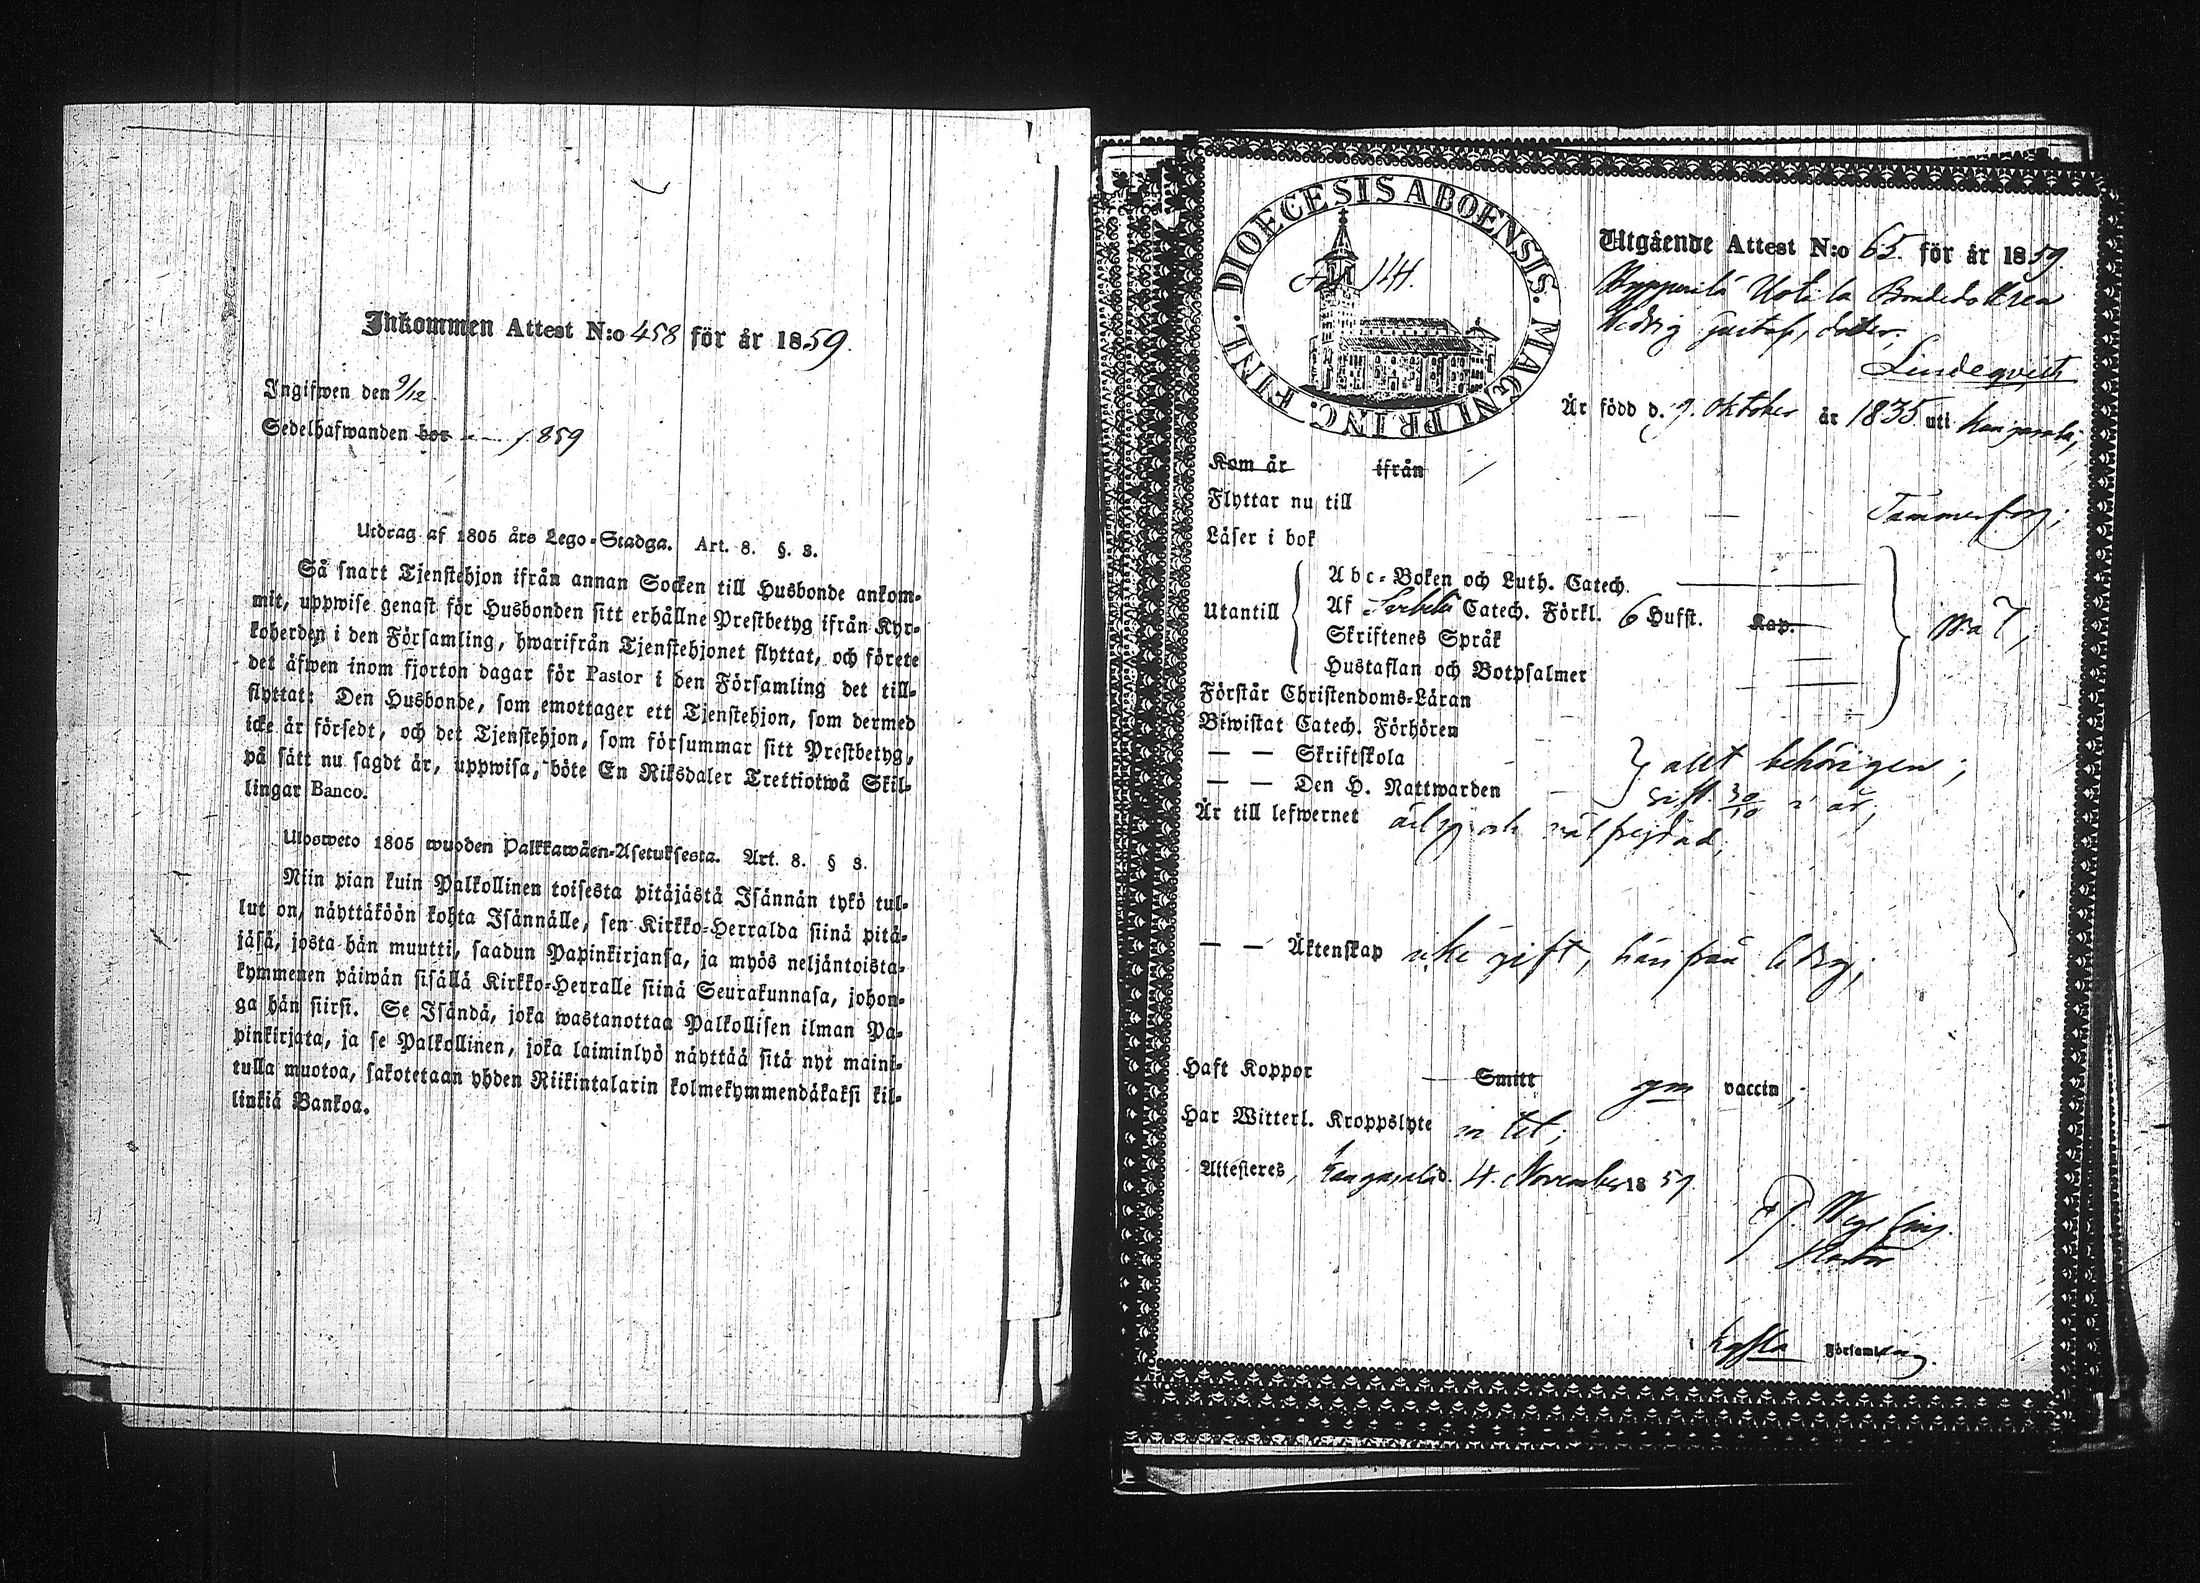 Inkommen Attest N:o 458 för år 1859.
Ingifwen den 9/12.
Sedelhafwanden bor 1859
Utdrag af 1805 års Lego-Stadga. Art. 8. §. 3.
Så snart Tjenstehjon ifrån annan Socken till Husbonde ankom-
mit, uppwise genast för Husbonden sitt erhållne Prestbetyg ifrån Kyr-
koherden i den Församling, hwarifrån Tjenstehjonet flyttat, och förete
det äfwen inom fjorton dagar för Pastor i den Församling det till-
flyttat: Den Husbonde, som emottager ett Tjenstehjon, som dermed
icke är försedt, och det Tjenstehjon, som försummar sitt Prestbetyg,
på sätt nu sagdt är, uppwisa, böte En Riksdaler Trettiotwå Skil-
lingar Banco.
Ulosweto 1805 wuoden Palkkawäen-Asetuksesta. Art. 8. § 3.
Niin pian kuin Palkollinen toisesta pitäjästä Isännän tykö tul-
lut on, näyttäköön kohta Isännälle, sen Kirkko-Herralda siinä pitä-
jäsä, josta hän muutti, saadun Papinkirjansa, ja myös neljäntoista-
kymmenen päiwän sisällä Kirkko-Herralle siinä Seurakunnasa, johon-
ga hän siirsi. Se Isändä, joka wastanottaa Palkollisen ilman Pa-
pinkirjata, ja se Palkollinen, joka laiminlyö näyttää sitä nyt maini-
tulla muotoa, sakotetaan yhden Riikintalarin kolmekymmendäkaksi kil-
linkiä Bankoa.
DIOECESIS ABOENSIS. MAGNI PRINC. FINL.
Fol 141.
Utgående Attest N:o 65 för år 1859.
Uotila Bondedottren
Hedvig Gustafsdotter
Lindeqvist
Är född d. 9. Oktober år 1835 uti Kangasala;
Kom år ifrån
Flyttar nu till Tammerfors;
Läser i bok
Abc-Boken och Luth. Catech.
Utantill Af Catech. Förkl. 6 Hufst. Kap.
Skriftenes Språk
Hustaflan och Botpsalmer
Förstår Christendoms-Läran
Biwistat Catech. Förhören
— — Skriftskola allt behörigen;
— — Den H. Nattwarden sist 30/10 i år;
Är till lefwernet ärlig och välfrejdad;
— — Äktenskap icke gift, härifrån ledig;
Haft Koppor Smitt gm vaccin;
Har Witterl. Kroppslyte intet;
Attesteres, Kangasala d. 4. November 1859.
Församling.